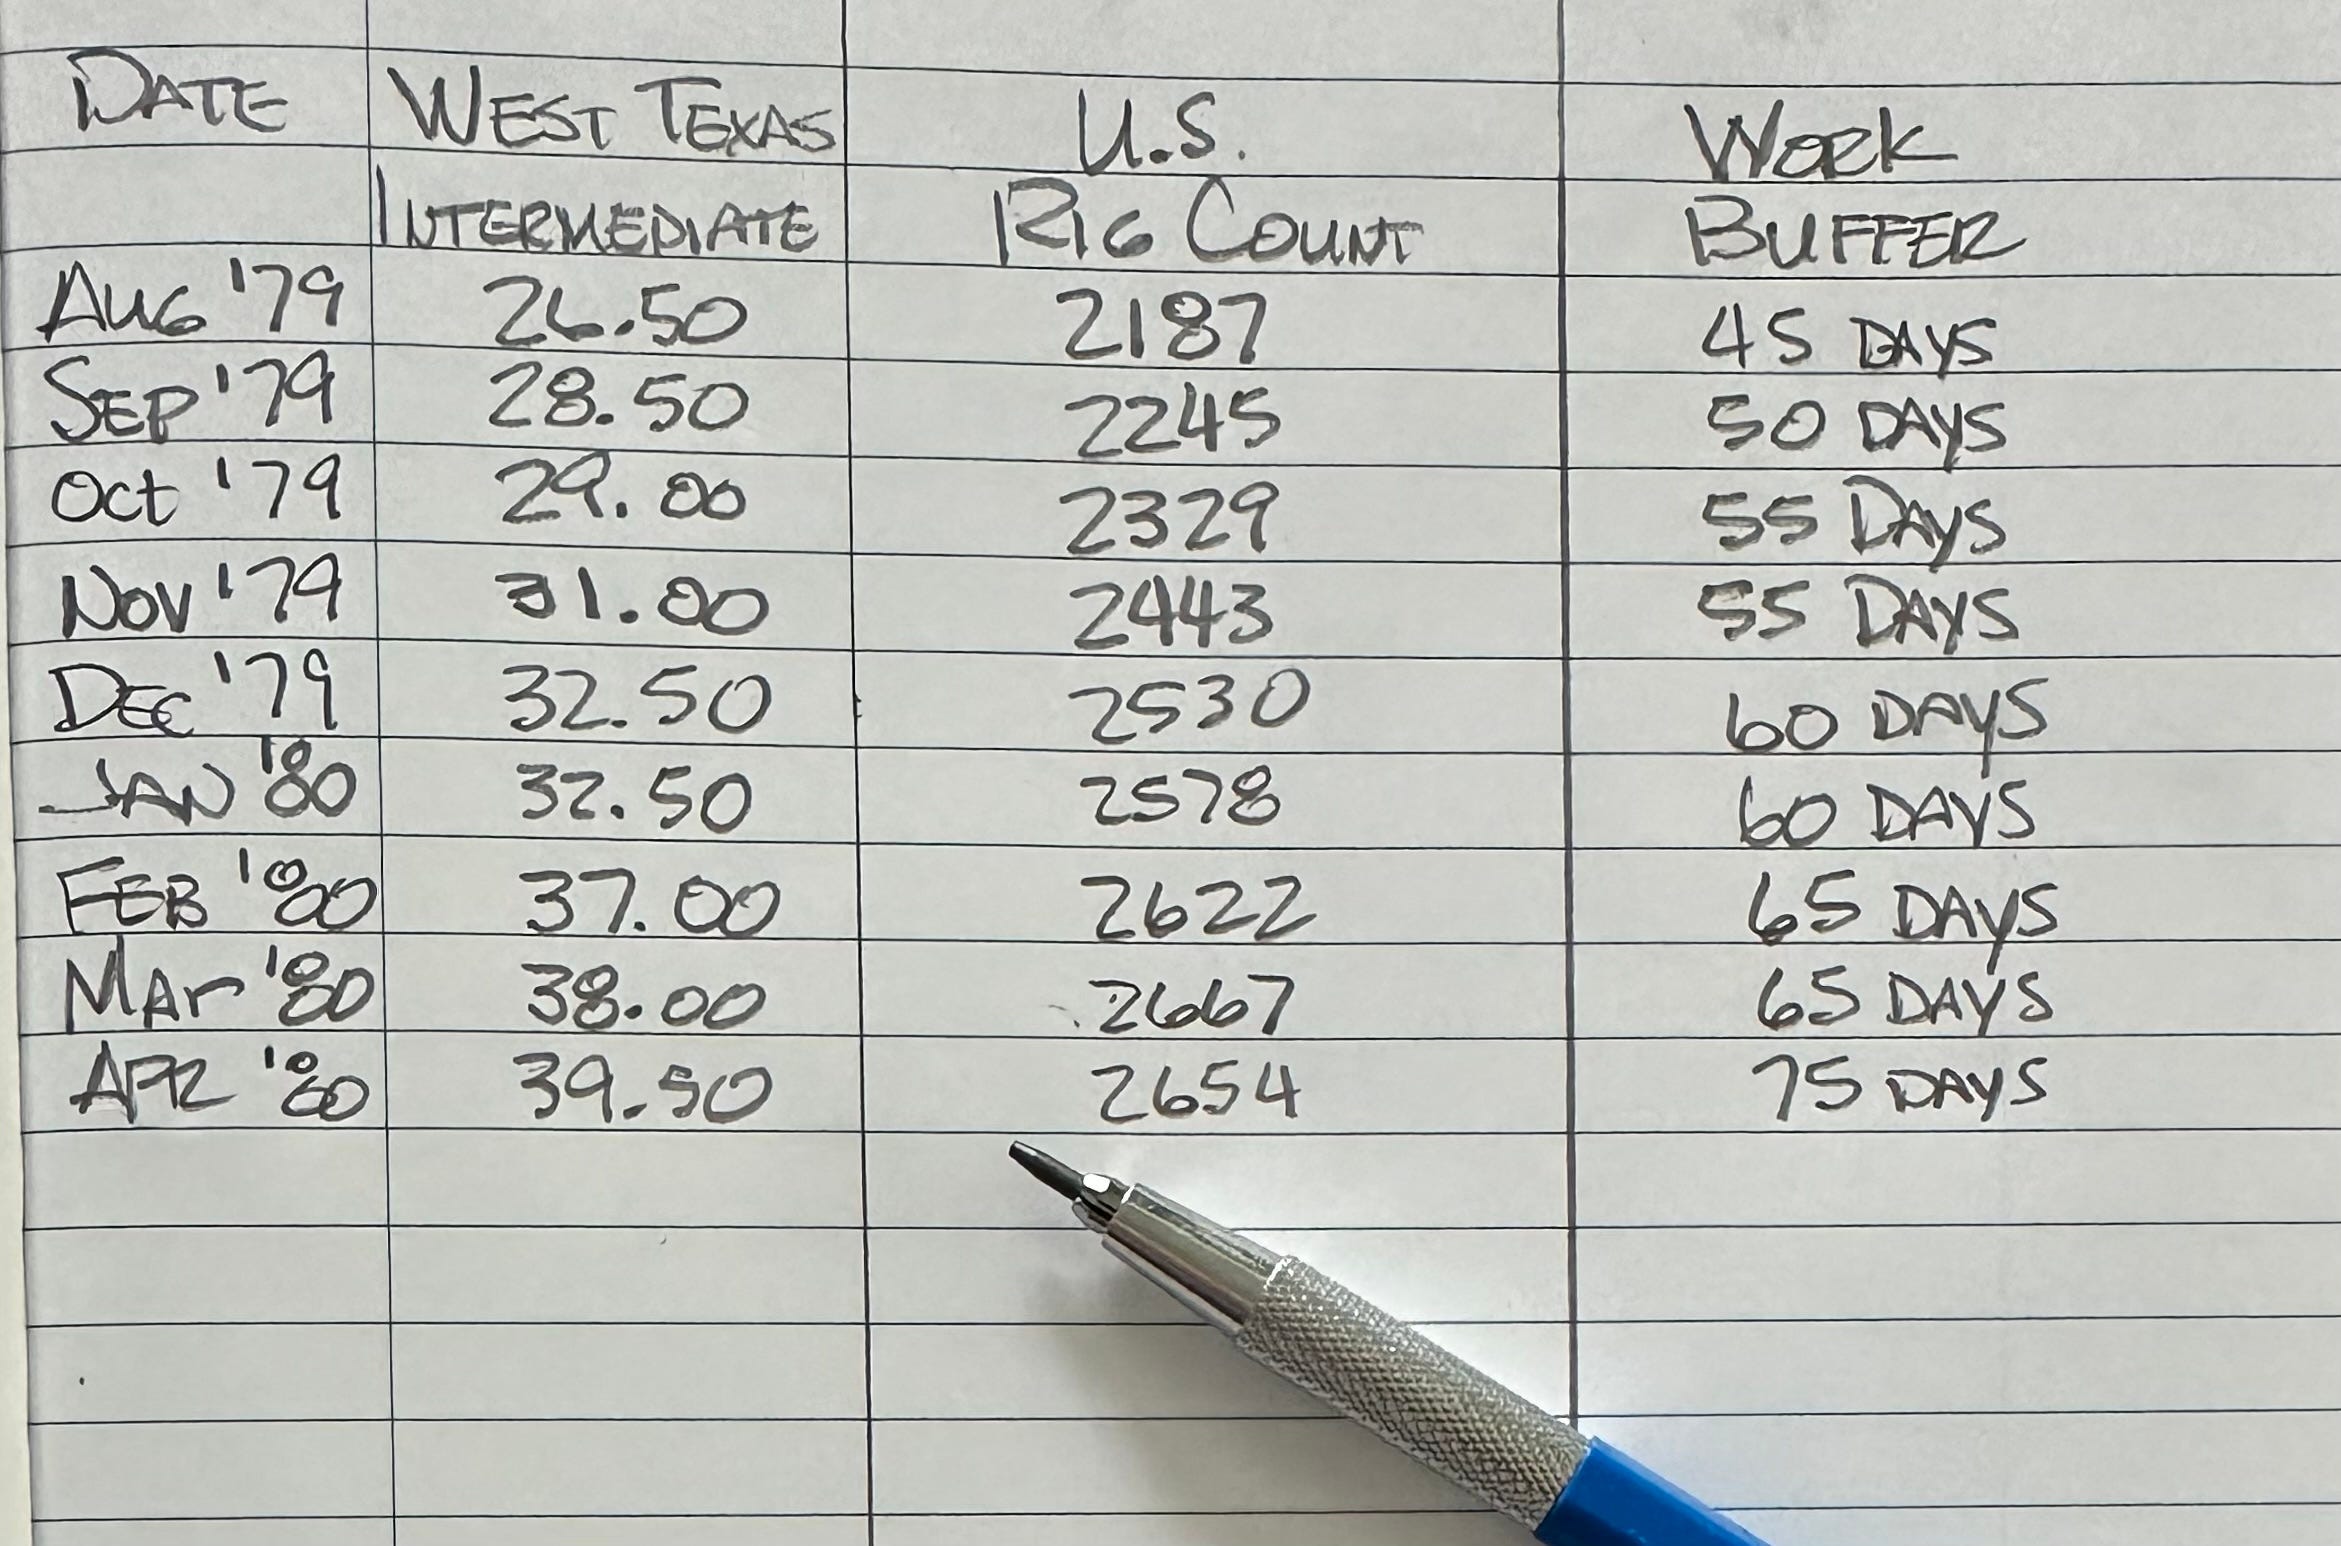 DATE WEST TEXAS U.S. WORK
INTERMEDIATE RIG COUNT BUFFER
AUG '79 26.50 2187 45 DAYS
SEP '79 28.50 2245 50 DAYS
Oct '79 29.00 2329 55 DAYS
NOV '79 31.00 2443 55 DAYS
DEC '79 32.50 2530 60 DAYS
JAN '80 32.50 2578 60 DAYS
FEB '80 37.00 2622 65 DAYS
MAr '80 38.00 2667 65 DAYS
APR '80 39.50 2654 75 DAYS